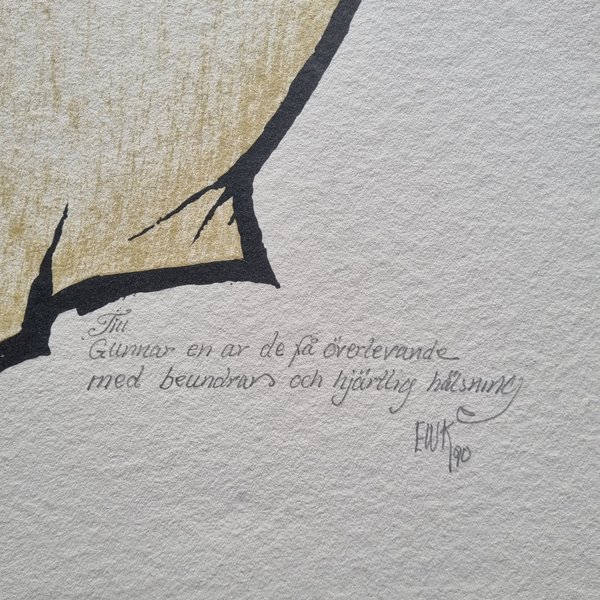 Till
Gunnar en av de få överlevande
med beundran och hjärtlig hälsning
EWK
90